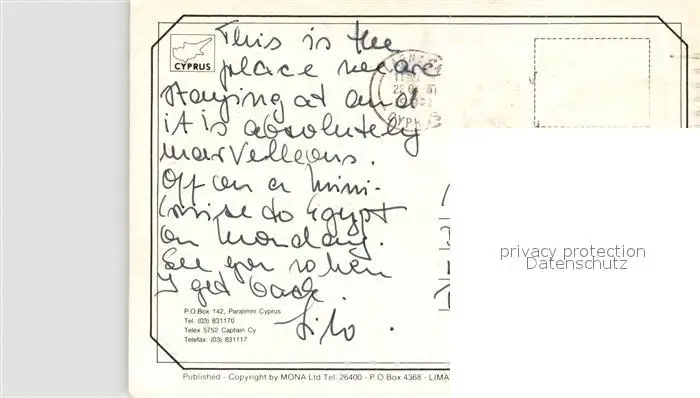 CYPRUS
This is the
place we are
staying at and
it is absolutely
marvelleous.
Off on a mini-
Cruise to Egypt
on Monday.
See you when
I get back.
P.O.Box 142, Paralimni Cyprus
Tel: (03) 831170
Telex 5752 Captain Cy
Telefax: (03) 831117
Published - Copyright by MONA Ltd Tel. 26400 - P.O Box 4368 - LIMA
privacy protection
Datenschutz